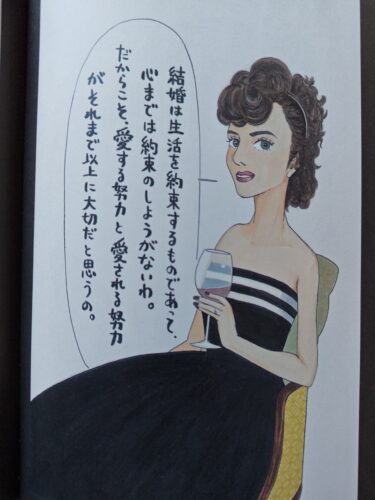 結婚は生活を約束するものであって、
心までは約束のしようがないわ。
だからこそ、愛する努力と愛される努力
がそれまで以上に大切だと思うの。